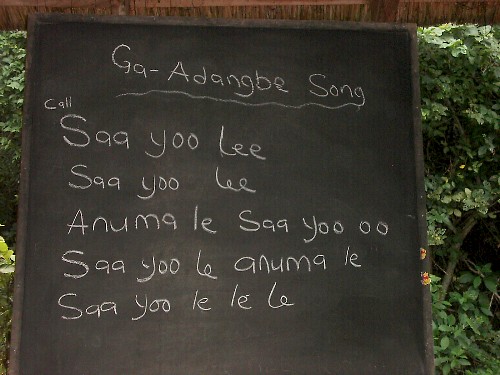 Ga-Adangbe Song
Call
Saa yoo Lee
Saa yoo Lee
Anuma le Saa yoo oo
Saa yoo le anuma le
Saa yoo le le le